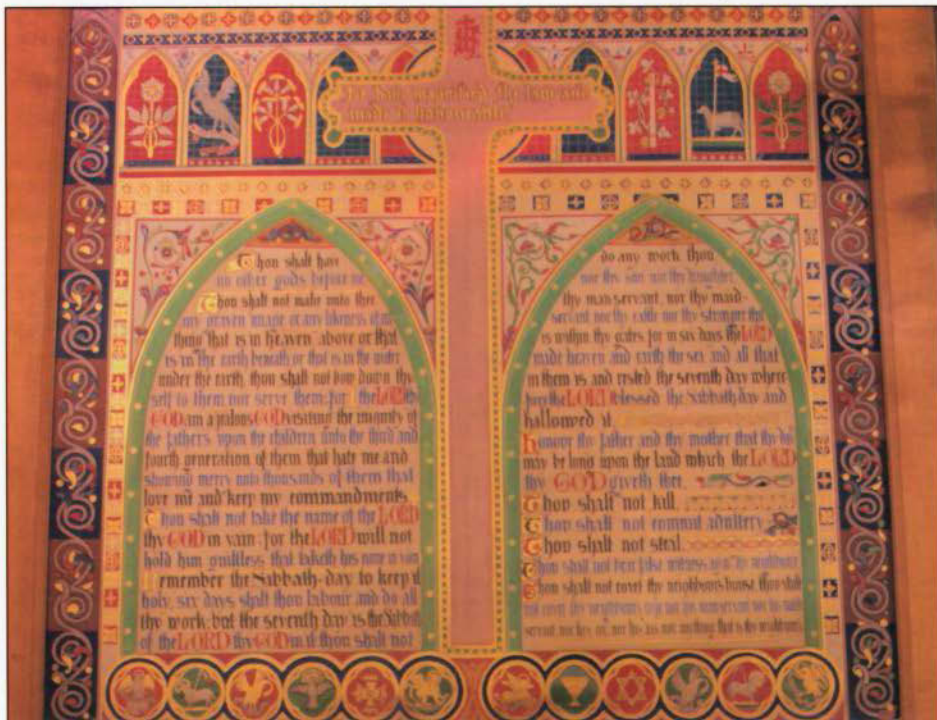 IHS
He will magnify the law and
make it honourable
Thou shalt have
no other gods before me
Thou shalt not make unto thee
any graven image or any likeness of any
thing that is in heaven above or that
is in the earth beneath or that is in the water
under the earth, thou shalt not bow down thy
self to them nor serve them; for I the LORD thy
GOD am a jealous GOD visiting the iniquity of
the fathers upon the children unto the third and
fourth generation of them that hate me and
shewing mercy unto thousands of them that
love me and keep my commandments.
Thou shalt not take the name of the LORD
thy GOD in vain: for the LORD will not
hold him guiltless that taketh his name in vain
Remember the Sabbath-day to keep it
holy, six days shalt thou labour and do all
thy work: but the seventh day is the Sabbath
of the LORD thy GOD in it thou shalt not
do any work thou
nor thy son nor thy daughter
thy man servant, nor thy maid-
servant nor thy cattle nor thy stranger that
is within thy gates, for in six days the LORD
made heaven and earth the sea and all that
in them is and rested the seventh day where
fore the LORD blessed the Sabbath day and
hallowed it
Honour thy father and thy mother that thy days
may be long upon the land which the LORD
thy GOD giveth thee.
Thou shalt not kill.
Thou shalt not commit adultery
Thou shalt not steal.
Thou shalt not bear false witness agst thy neighbour
Thou shalt not covet thy neighbours house, thou shalt
not covet thy neighbours wife nor his manservant nor his maid
servant, nor his ox, nor his ass nor anything that is thy neighbours